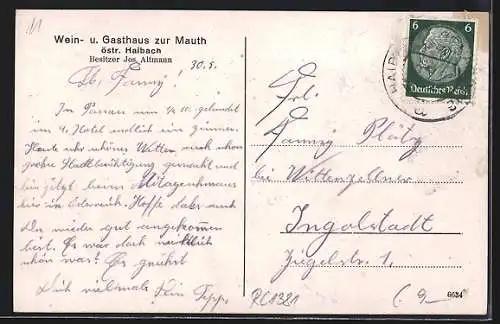 11
Wein- u. Gasthaus zur Mauth
östr. Haibach
Besitzer Jos. Altmann
30.5.
Lb. Fanny!
In Passau um ½ 10 gelandet
im 4. Hotel endlich ein Zimmer.
Heute sehr schönes Wetter, auch schon
große Stadtbesichtigung gemacht und
bin jetzt beim Mittagessen
hier in Österreich. Hoffe daß auch
Du wieder gut angekommen
bist. Es war doch wirklich
schön was? Es grüßt
Dich vielmals Dein Sepp.
6
6
Deutsches Reich
HAIBACH
Frl.
Fanny Plötz
bei Wittenzellner
Ingolstadt
Ziegelstr. 1.
RC1381
6634